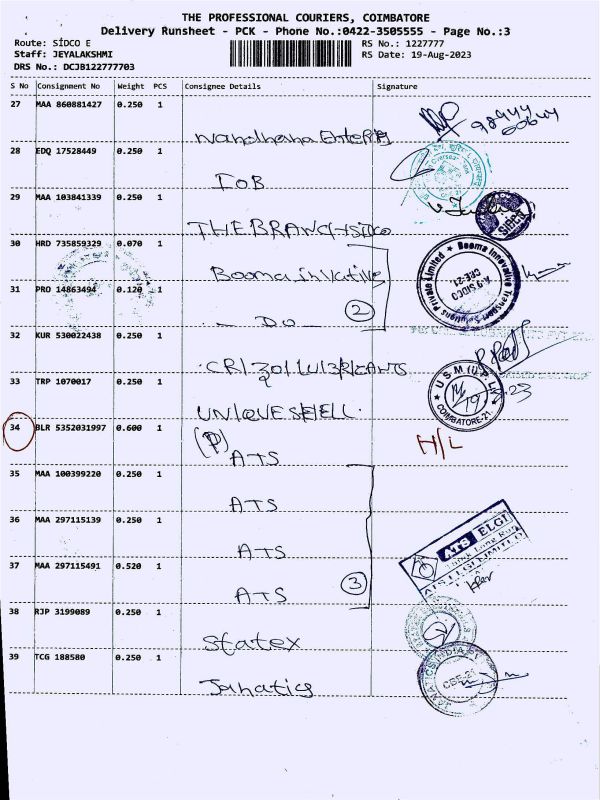 THE PROFESSIONAL COURIERS, COIMBATORE
Delivery Runsheet - PCK - Phone No.:0422-3505555 - Page No.:3
Route: SIDCO E
Staff: JEYALAKSHMI
DRS No.: DCJB122777703
RS No.: 1227777
RS Date: 19-Aug-2023
S No Consignment No Weight PCS Consignee Details Signature
27 MAA 860881427 0.250 1
28 EDQ 17528449 0.250 1 IOB
29 MAA 103841339 0.250 1 THE BRANCH Sidco
30 HRD 735859329 0.070 1 Booma
31 PRO 14863494 0.120 1 — DO — 2
32 KUR 530022438 0.250 1
33 TRP 1070017 0.250 1 UNIQUE SHELL.
34 BLR 5352031997 0.600 1 (P) ATS H/L
35 MAA 100399220 0.250 1 ATS
36 MAA 297115139 0.250 1 ATS
37 MAA 297115491 0.520 1 ATS 3
38 RJP 3199089 0.250 1 Statex
39 TCG 188580 0.250 1 Janatics
Booma Innovative Transport Solutions Private Limited
A-9 SIDCO
CBE-21.
SIDCO
U S M (U.P.L)
COIMBATORE-21.
ATS ELGI
ATS ELGI LIMITED
CBE-21